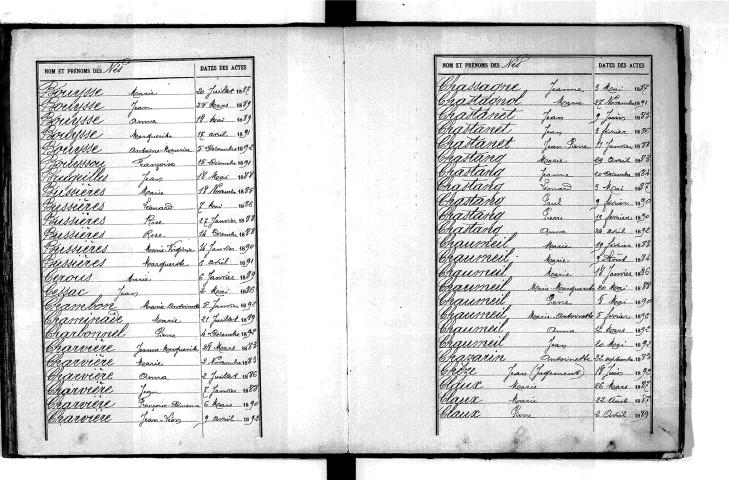 NOM ET PRÉNOMS DES Nés DATES DES ACTES
Bouysse Marie 20 Juillet 1887
Bouysse Jean 24 Mars 1889
Bouysse Anna 18 Mai 1889
Bouysse Marguerite 17 avril 1891
Bouysse Antoine-Maurice 5 Décembre 1892
Bouyssou Françoise 15 Décembre 1891
Jean 18 Mai 1888
Bussières Marie 18 Novembre 1885
Bussières Léonard 7 Mai 1886
Bussières Rose 27 Janvier 1888
Bussières Rose 14 Décembre 1888
Bussières Marie 14 Janvier 1890
Bussières Marguerite avril 1891
Cerous Marie 6 Janvier 1889
Cessac Jean 2 Mai 1886
Chambon Marie Antoinette 5 Janvier 1892
Chaminade Marie 21 Juillet 1889
Charbonnel Pierre 4 Décembre 1892
Charvière Jeanne Marguerite 28 Mars 1883
Charvière Marie 2 Novembre 1883
Charvière Anna 2 Juillet 1886
Charvière Jean 7 Janvier 1888
Charvière Françoise 6 Mars 1890
Charvière Jean-Léon 9 avril 1892
NOM ET PRÉNOMS DES Nés DATES DES ACTES
Chassagne Jeanne 3 Mai 1887
Chastagnol Marie 27 Novembre 1891
Chastanet Jean 9 Juin 1883
Chastanet Jean 3 février 1886
Chastanet Jean Pierre 11 Janvier 1888
Chastang Marie 29 avril 1883
Chastang Jeanne 20 Décembre 1884
Chastang Léonard 3 Mai 1887
Chastang Paul 9 février 1890
Chastang Pierre 19 février 1890
Chastang Anna 24 avril 1892
Chaumeil Marie 19 février 1883
Chaumeil Marie 9 Août 1884
Chaumeil Marie 18 Janvier 1886
Chaumeil Marie Marguerite 20 Mai 1888
Chaumeil Pierre 8 Mai 1890
Chaumeil Marie Antoinette 5 février 1892
Chaumeil Anna 12 Mars 1892
Chaumeil Jean 20 Mai 1892
Chazarin Antoinette 22 septembre 1883
Chèze Jean (Jugement) 18 Juin 1892
Claux Marie 26 Mars 1885
Claux Marie 22 Août 1887
Claux Pierre 2 Avril 1889